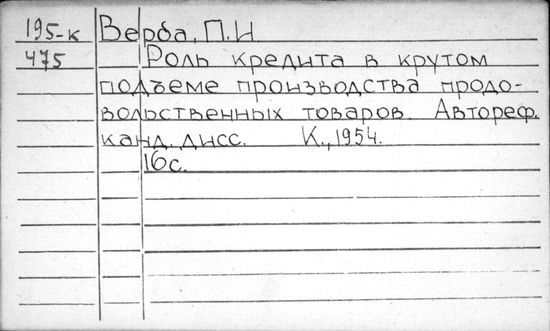 195-к Верба, П.И
475 Роль кредита в крутом
подъеме производства продо-
вольственных товаров. Автореф.
канд. дисс. К., 1954.
16с.